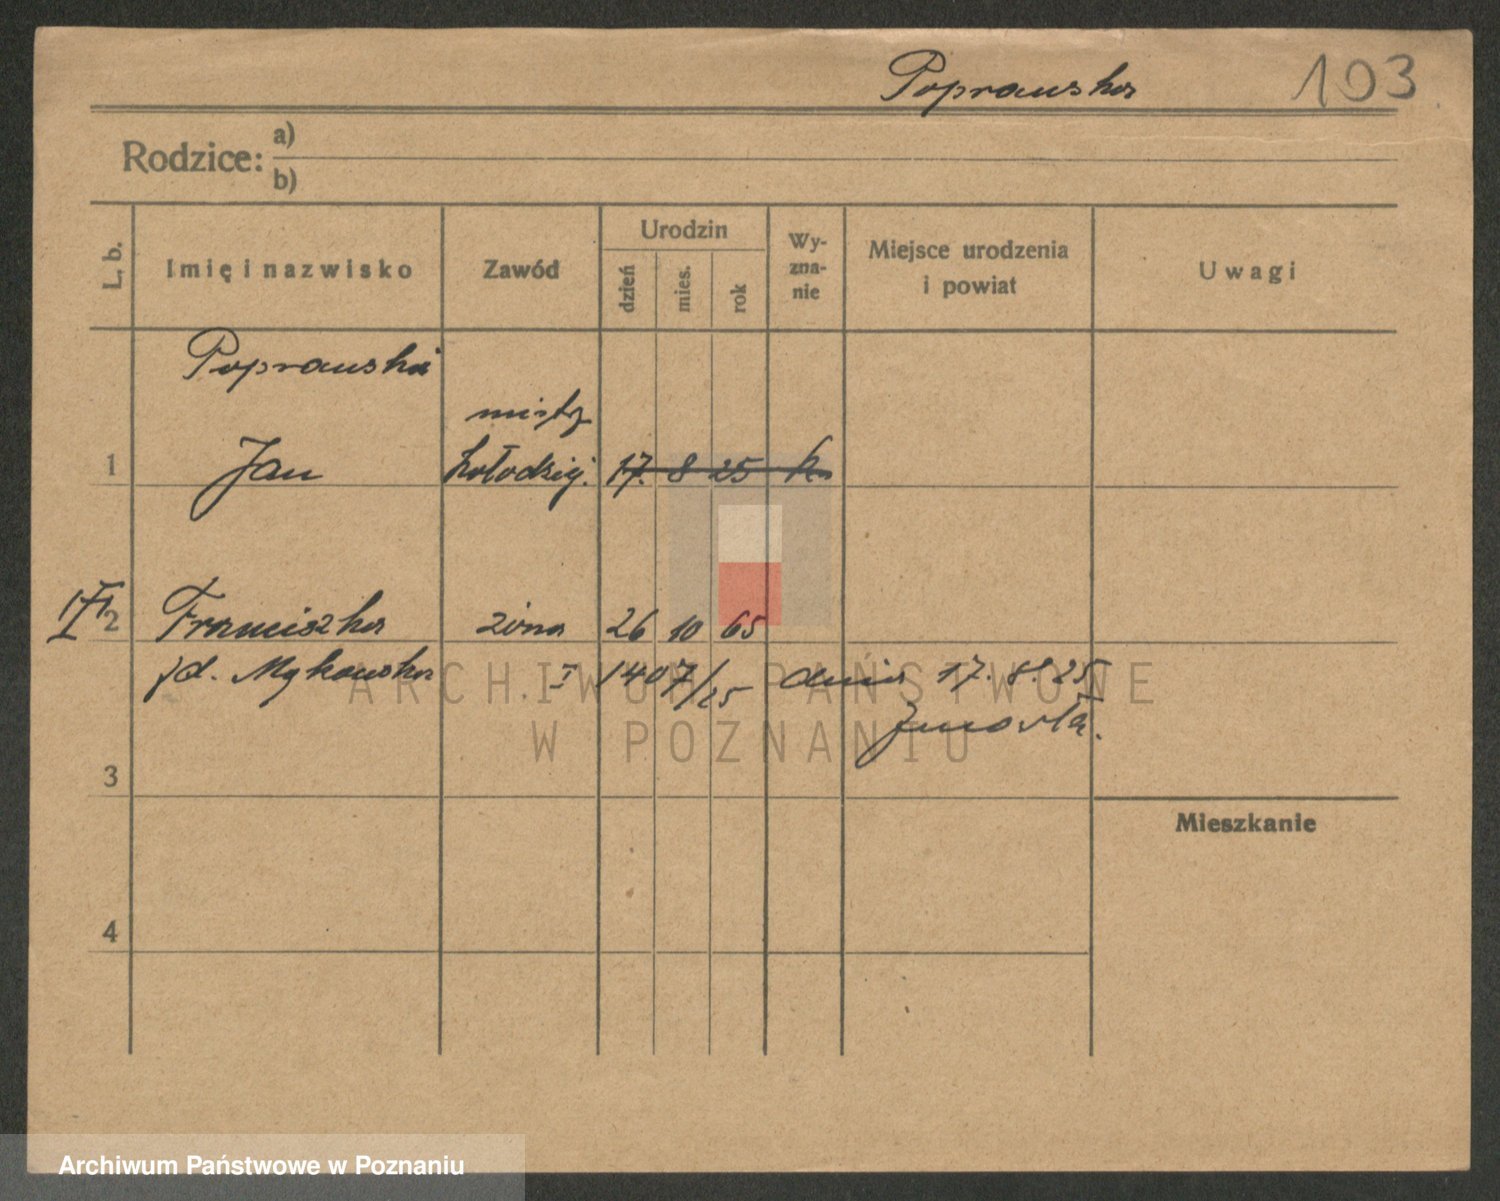 Poprawska 103
Rodzice: a)
b)
L. b.
Imię i nazwisko
Zawód
Urodzin
dzień
mies.
rok
Wy-
zna-
nie
Miejsce urodzenia
i powiat
Uwagi
Poprawski
mistrz
1 Jan kołodziej. 17. 8 25 k.
2 Franciszka żona 26 10 65
I 1407/25 dnia 17. 8. 25
zmarła.
3
Mieszkanie
4
ARCHIWUM PAŃSTWOWE
W POZNANIU
Archiwum Państwowe w Poznaniu